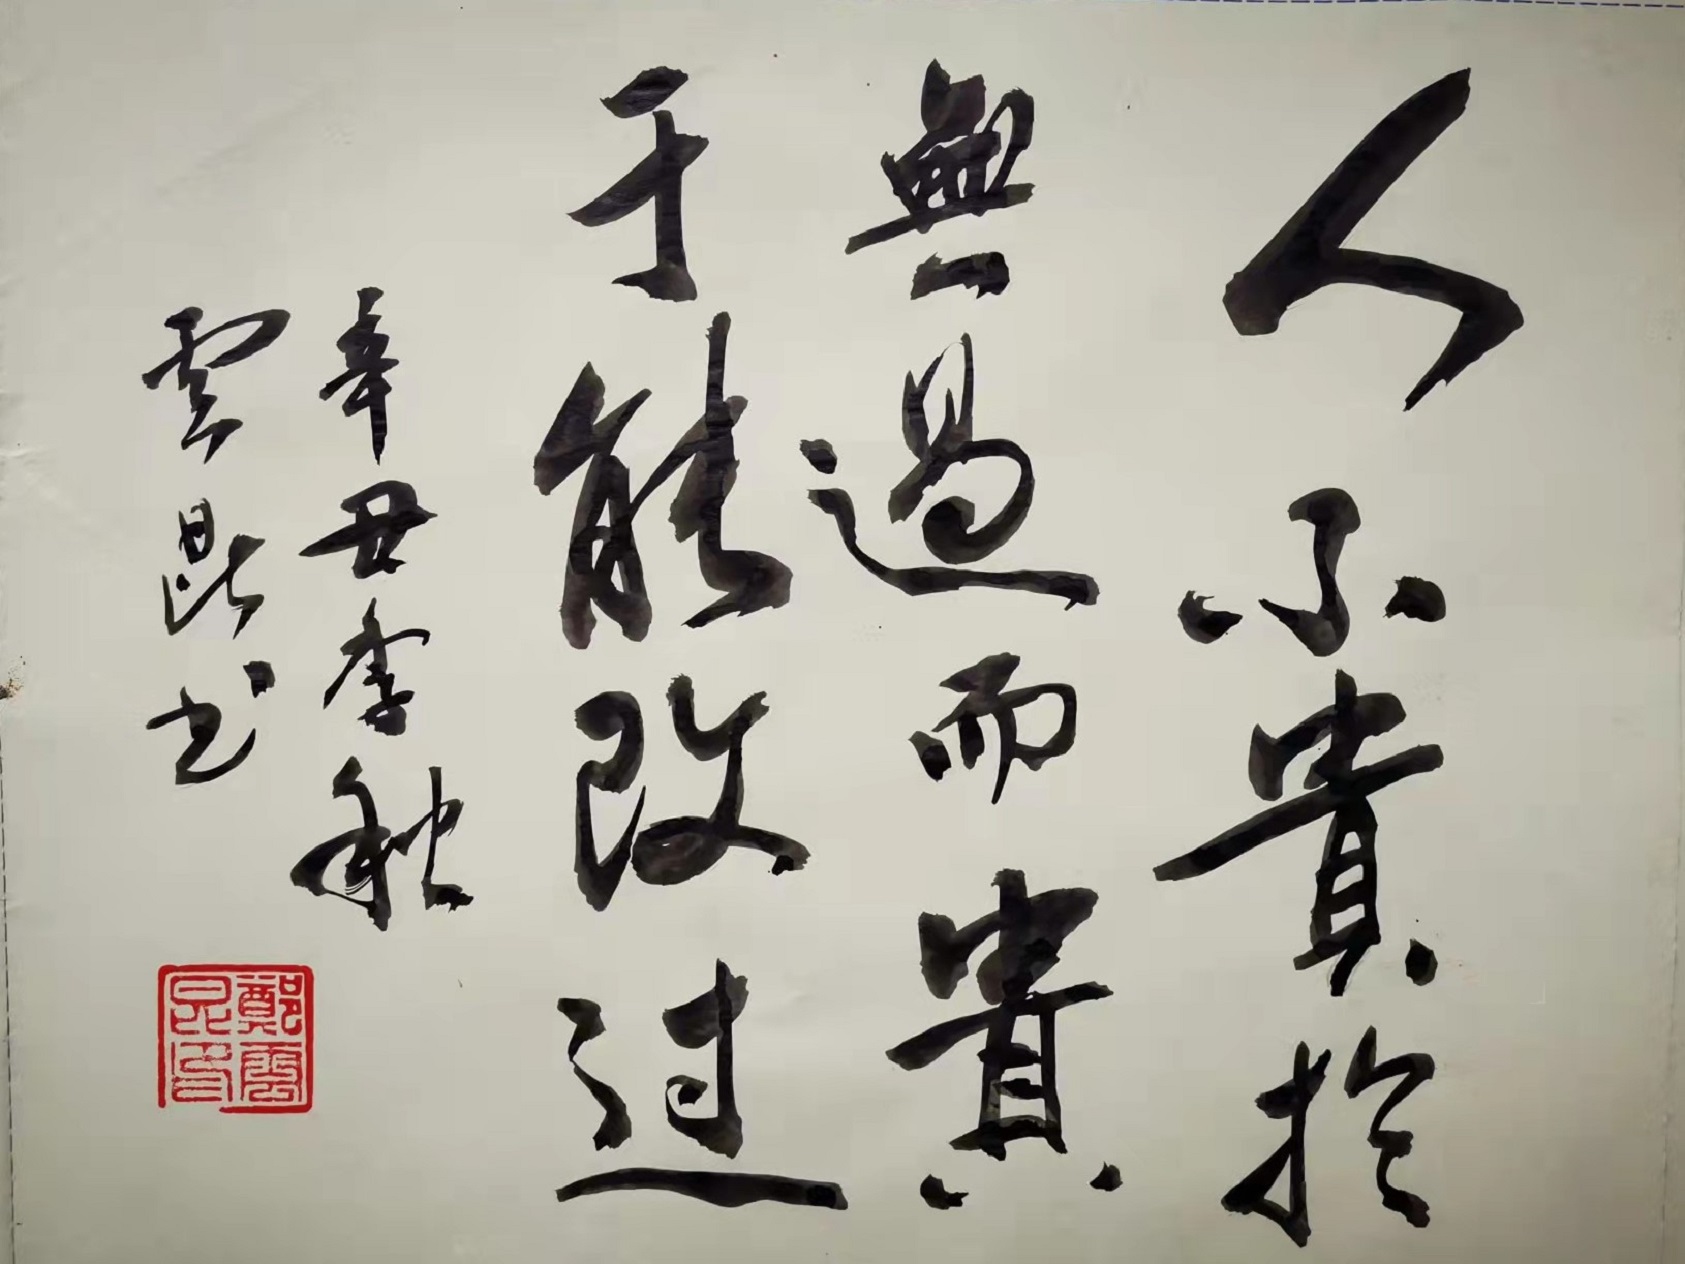 人不貴於
無過而貴
于能改过
辛丑季秋
雲昆书
鄭雲
昆印